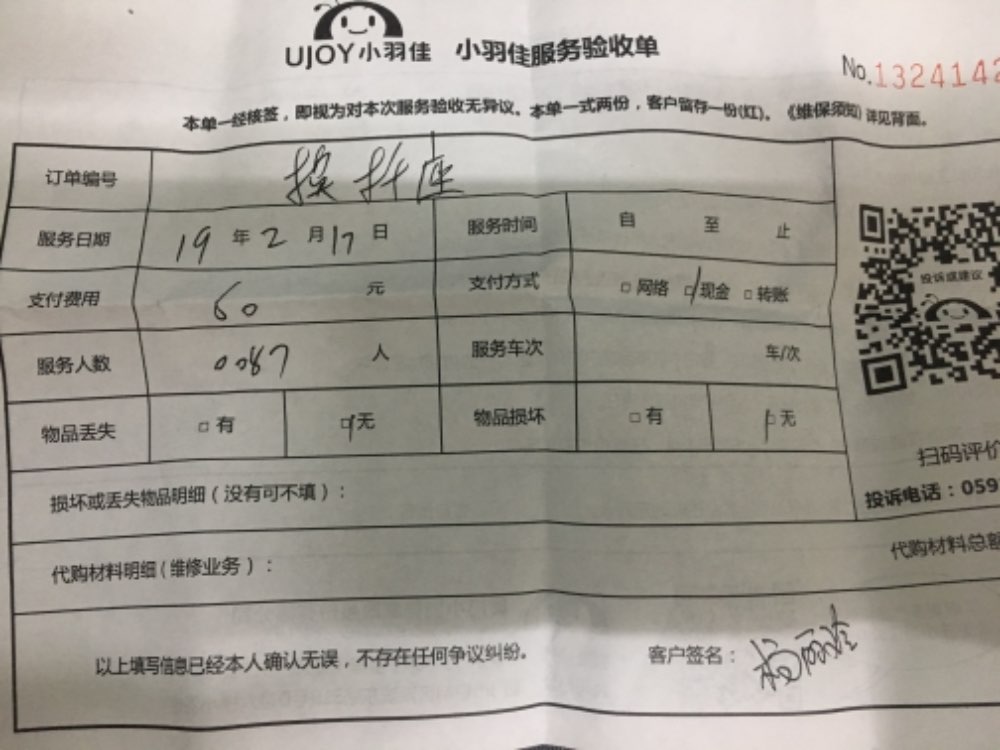 UJOY小羽佳 小羽佳服务验收单
No.1324142
本单一经核签，即视为对本次服务验收无异议。本单一式两份，客户留存一份(红)。《维保须知》详见背面。
订单编号 换折座
服务日期 19年2月17日 服务时间 自 至 止
支付费用 60 元 支付方式 □网络 □现金 □转账
服务人数 0087 人 服务车次 车/次
物品丢失 □有 □无 物品损坏 □有 □无
投诉或建议
扫码评价
投诉电话：059
损坏或丢失物品明细（没有可不填）：
代购材料明细(维修业务)： 代购材料总额
以上填写信息已经本人确认无误，不存在任何争议纠纷。 客户签名：